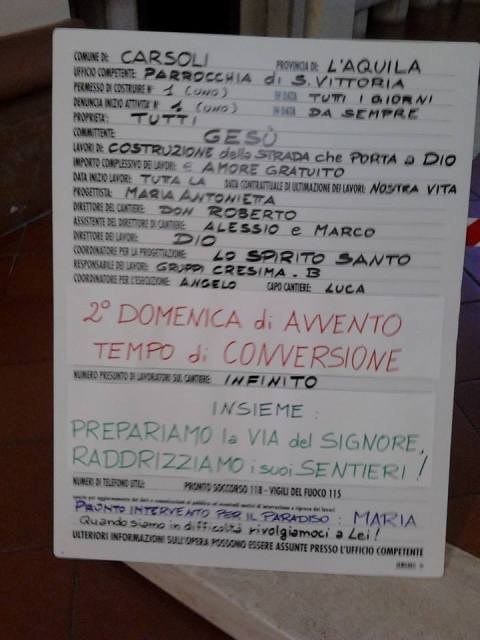 COMUNE DI: CARSOLI PROVINCIA DI: L'AQUILA
UFFICIO COMPETENTE: PARROCCHIA di S. VITTORIA
PERMESSO DI COSTRUIRE N° 1 (UNO) IN DATA TUTTI I GIORNI
DENUNCIA INIZIO ATTIVITA' N° 1 (UNO) IN DATA DA SEMPRE
PROPRIETA': TUTTI
COMMITTENTE: GESÙ
LAVORI DI: COSTRUZIONE della STRADA che PORTA a DIO
IMPORTO COMPLESSIVO DEI LAVORI: € AMORE GRATUITO
DATA INIZIO LAVORI: TUTTA LA DATA CONTRATTUALE DI ULTIMAZIONE DEI LAVORI: NOSTRA VITA
PROGETTISTA: MARIA ANTONIETTA
DIRETTORE DEL CANTIERE: DON ROBERTO
ASSISTENTE DEL DIRETTORE DI CANTIERE: ALESSIO e MARCO
DIRETTORE DEI LAVORI: DIO
COORDINATORE PER LA PROGETTAZIONE: LO SPIRITO SANTO
RESPONSABILE DEI LAVORI: GRUPPI CRESIMA - B
COORDINATORE PER L'ESECUZIONE: ANGELO CAPO CANTIERE: LUCA
2° DOMENICA di AVVENTO
TEMPO di CONVERSIONE
NUMERO PRESUNTO DI LAVORATORI SUL CANTIERE: INFINITO
INSIEME:
PREPARIAMO la VIA del SIGNORE,
RADDRIZZIAMO i suoi SENTIERI!
NUMERI DI TELEFONO UTILI: PRONTO SOCCORSO 118 - VIGILI DEL FUOCO 115
PRONTO INTERVENTO PER IL PARADISO: MARIA
Quando siamo in difficoltà rivolgiamoci a Lei!
ULTERIORI INFORMAZIONI SULL'OPERA POSSONO ESSERE ASSUNTE PRESSO L'UFFICIO COMPETENTE